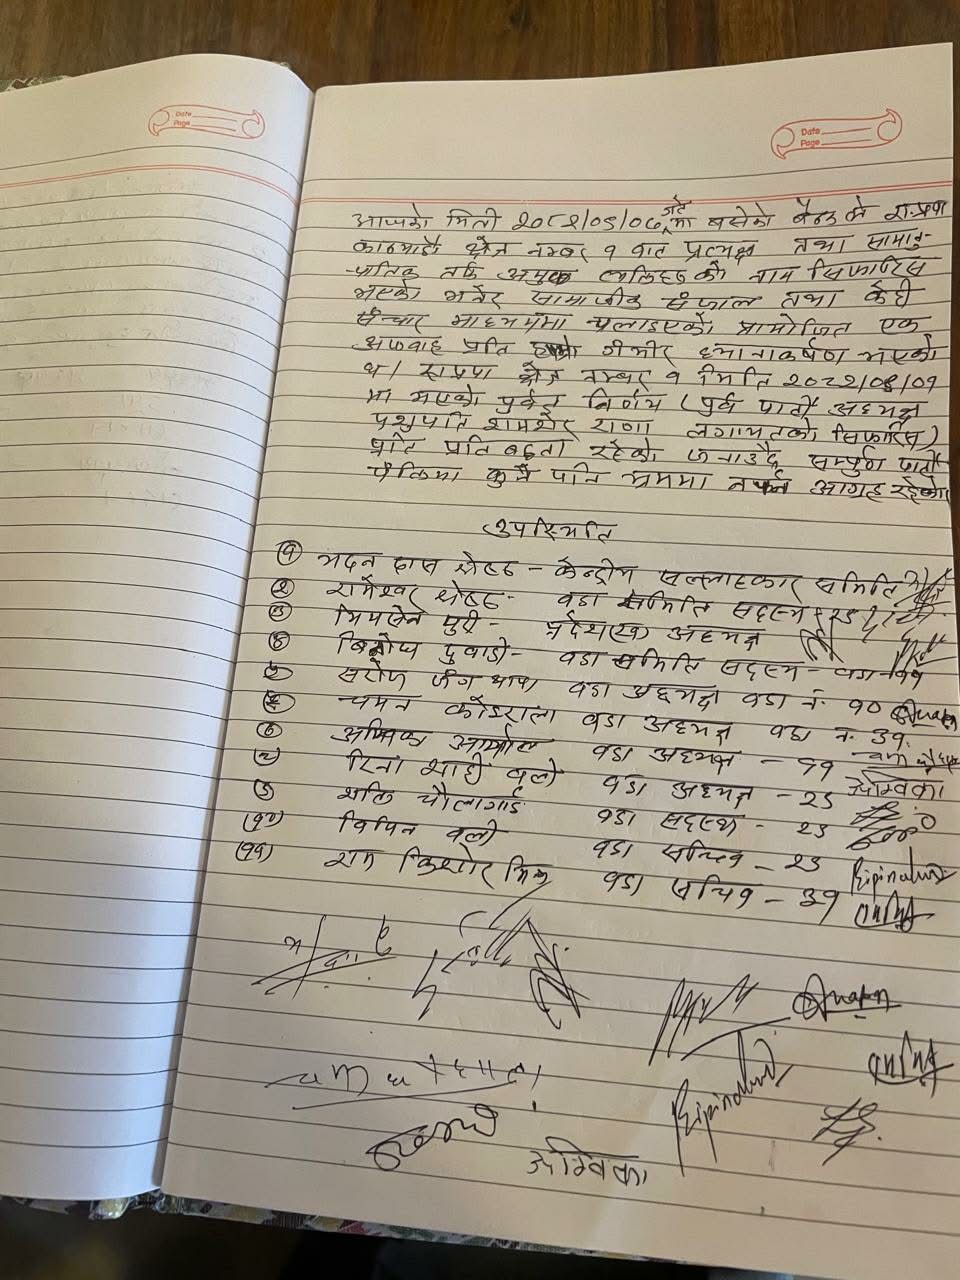 Date
Page
Date
Page
आजको मिती २०८२/०८/०८ गते मा बसेको बैठकले रा.प्र.पा
काठमाडौं क्षेत्र नम्बर १ बाट प्रत्यक्ष तथा सामानु-
-पातिक तर्फ अमुक व्यक्तिहरुको नाम सिफारिस
भएको भनेर सामाजीक संजाल तथा केही
संन्चार माध्यममा चलाइएको प्रायोजित एक
अफवाह प्रति गंभीर ध्यानाकर्षण भएको
छ। राप्रपा क्षेत्र नम्बर १ मिति २०८२/०८/०१
मा भएको पुर्वत निर्णय (पुर्व पार्टी अध्यक्ष
पशुपति शमशेर राणा लगायतको सिफारिस)
प्रति प्रतिबद्दता रहेको जनाउँदै सम्पुर्ण पार्टी
पंक्तिमा कुनै पनि भ्रममा नपर्न आग्रह रहेको।
उपस्थिति
(१) मदन दास श्रेष्ठ - केन्द्रीय सल्लाहकार समिति
(२) रामेश्वर श्रेष्ठ - वडा समिति सदस्य
(३) भिमसेन पुरी - प्रदेशसभा अध्यक्ष
(४) बिनोज दुवाडी - वडा समिति सदस्य - वडा - ११
(५) सरोज जंग थापा वडा अध्यक्ष वडा नं. १०
(६) चमन कोइराला वडा अध्यक्ष वडा नं. ३१
(७) अम्बिका आर्याल वडा अध्यक्ष - ११
अम्बिका
(८) रिना शाही वली वडा अध्यक्ष - २९
(९) शक्ति चौलागाई वडा सदस्य - २९
(१०) विपिन वली वडा सचिव - २९ Bipinwali
(११) राम किशोर मिश्र वडा सचिव - ३१
Bipinwali
अम्बिका